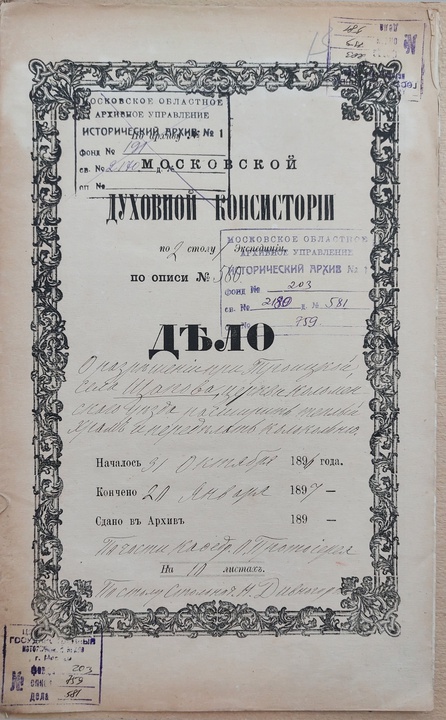 МОСКОВСКОЕ ОБЛАСТНОЕ
АРХИВНОЕ УПРАВЛЕНИЕ
ИСТОРИЧЕСКИЙ АРХИВ № 1
фонд №
св. № д. №
оп. №
МОСКОВСКОЙ
ДУХОВНОЙ КОНСИСТОРІИ
по 2 столу Экспедиціи
по описи № 580
МОСКОВСКОЕ ОБЛАСТНОЕ
АРХИВНОЕ УПРАВЛЕНИЕ
ИСТОРИЧЕСКИЙ АРХИВ № 1
фонд № 203
св. № 2180 д. № 581
№ 759
ДѢЛО
О разрѣшеніи при Троицкой,
села церкви Коломен
скаго уѣзда разширить теплый
храмъ и передѣлать колокольню.
Началось 31 Октября 1896 года.
Кончено 20 Января 1897 —
Сдано въ Архивъ 189 —
На 10 листахъ.
г. Москвы
фонд 203
опись 759
дела 581
№